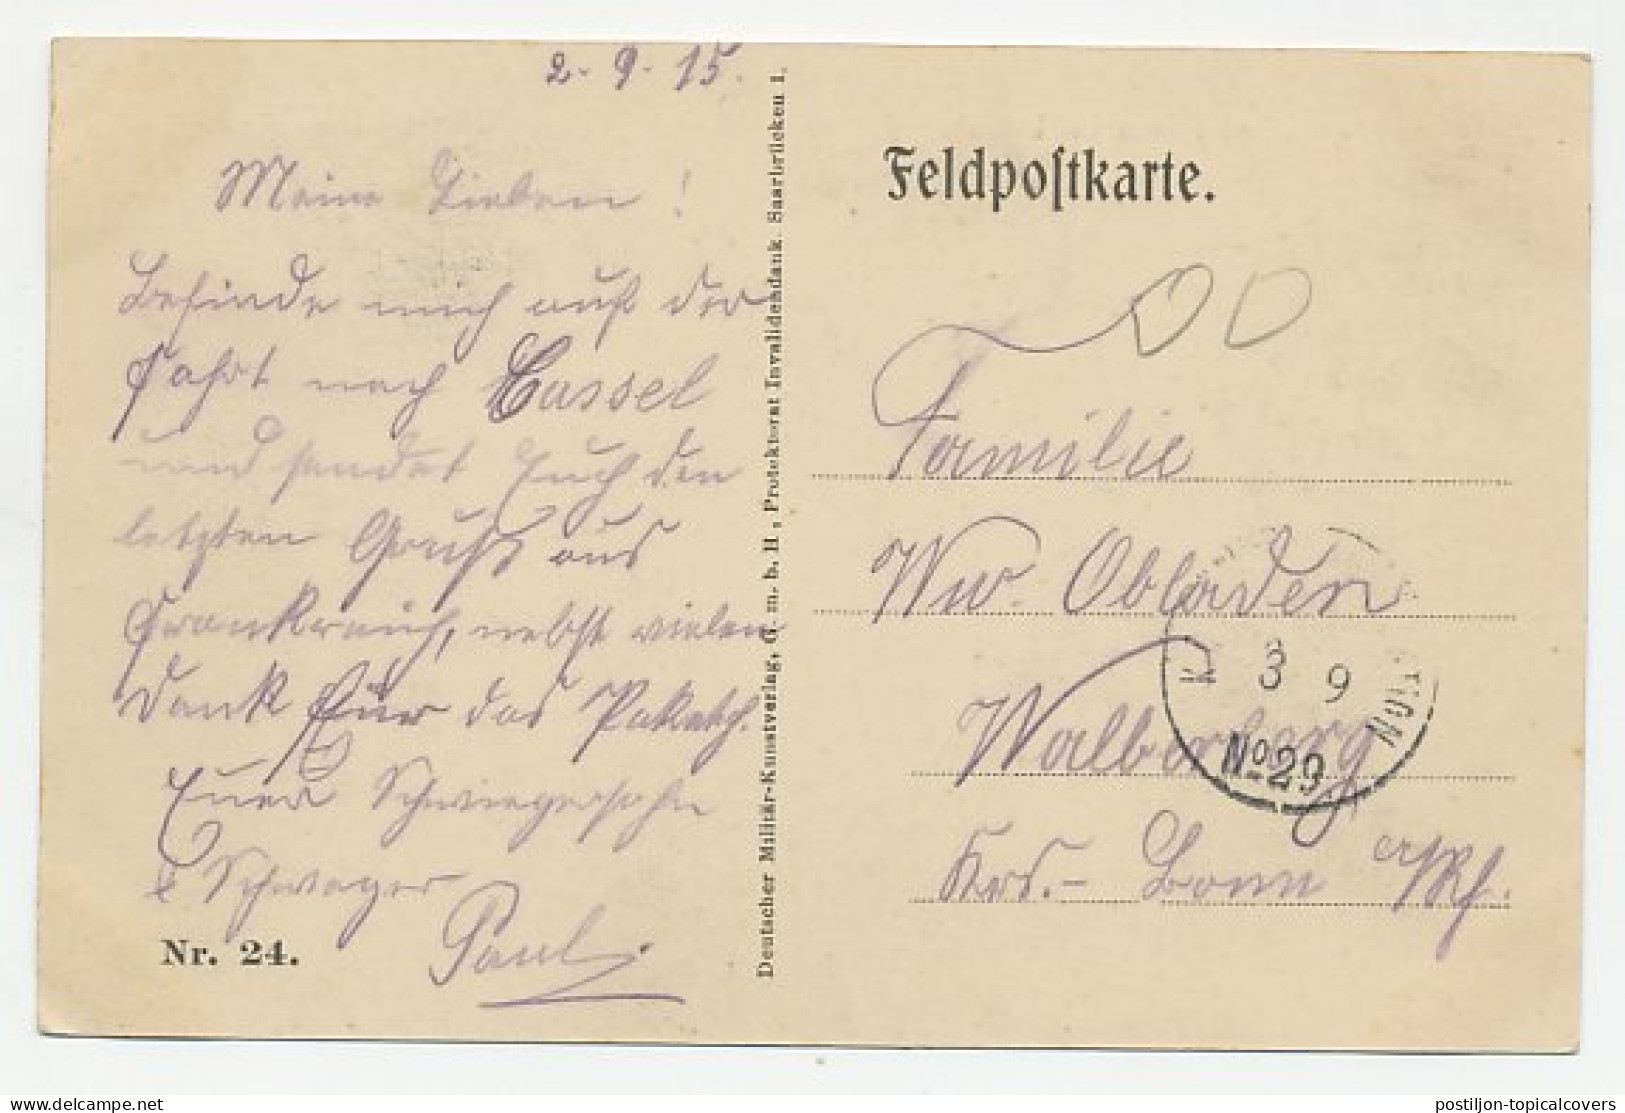 2. 9. 15.
Meine Lieben!
Befinde mich auf der
Fahrt nach Cassel
und sendet Euch den
letzten Gruß aus
Frankreich, nebst vielen
Dank für das Paketch.
Euer Schwiegersohn
& Schwager
Paul
Nr. 24.
Deutscher Militär-Kunstverlag, G. m. b. H., Protektorat Invalidendank. Saarbrücken 1.
Feldpostkarte.
Familie
Ww. Obladen
Walberberg
Krs.- Bonn a/Rh.
K
3 9
No 29
postiljon-topicalcovers